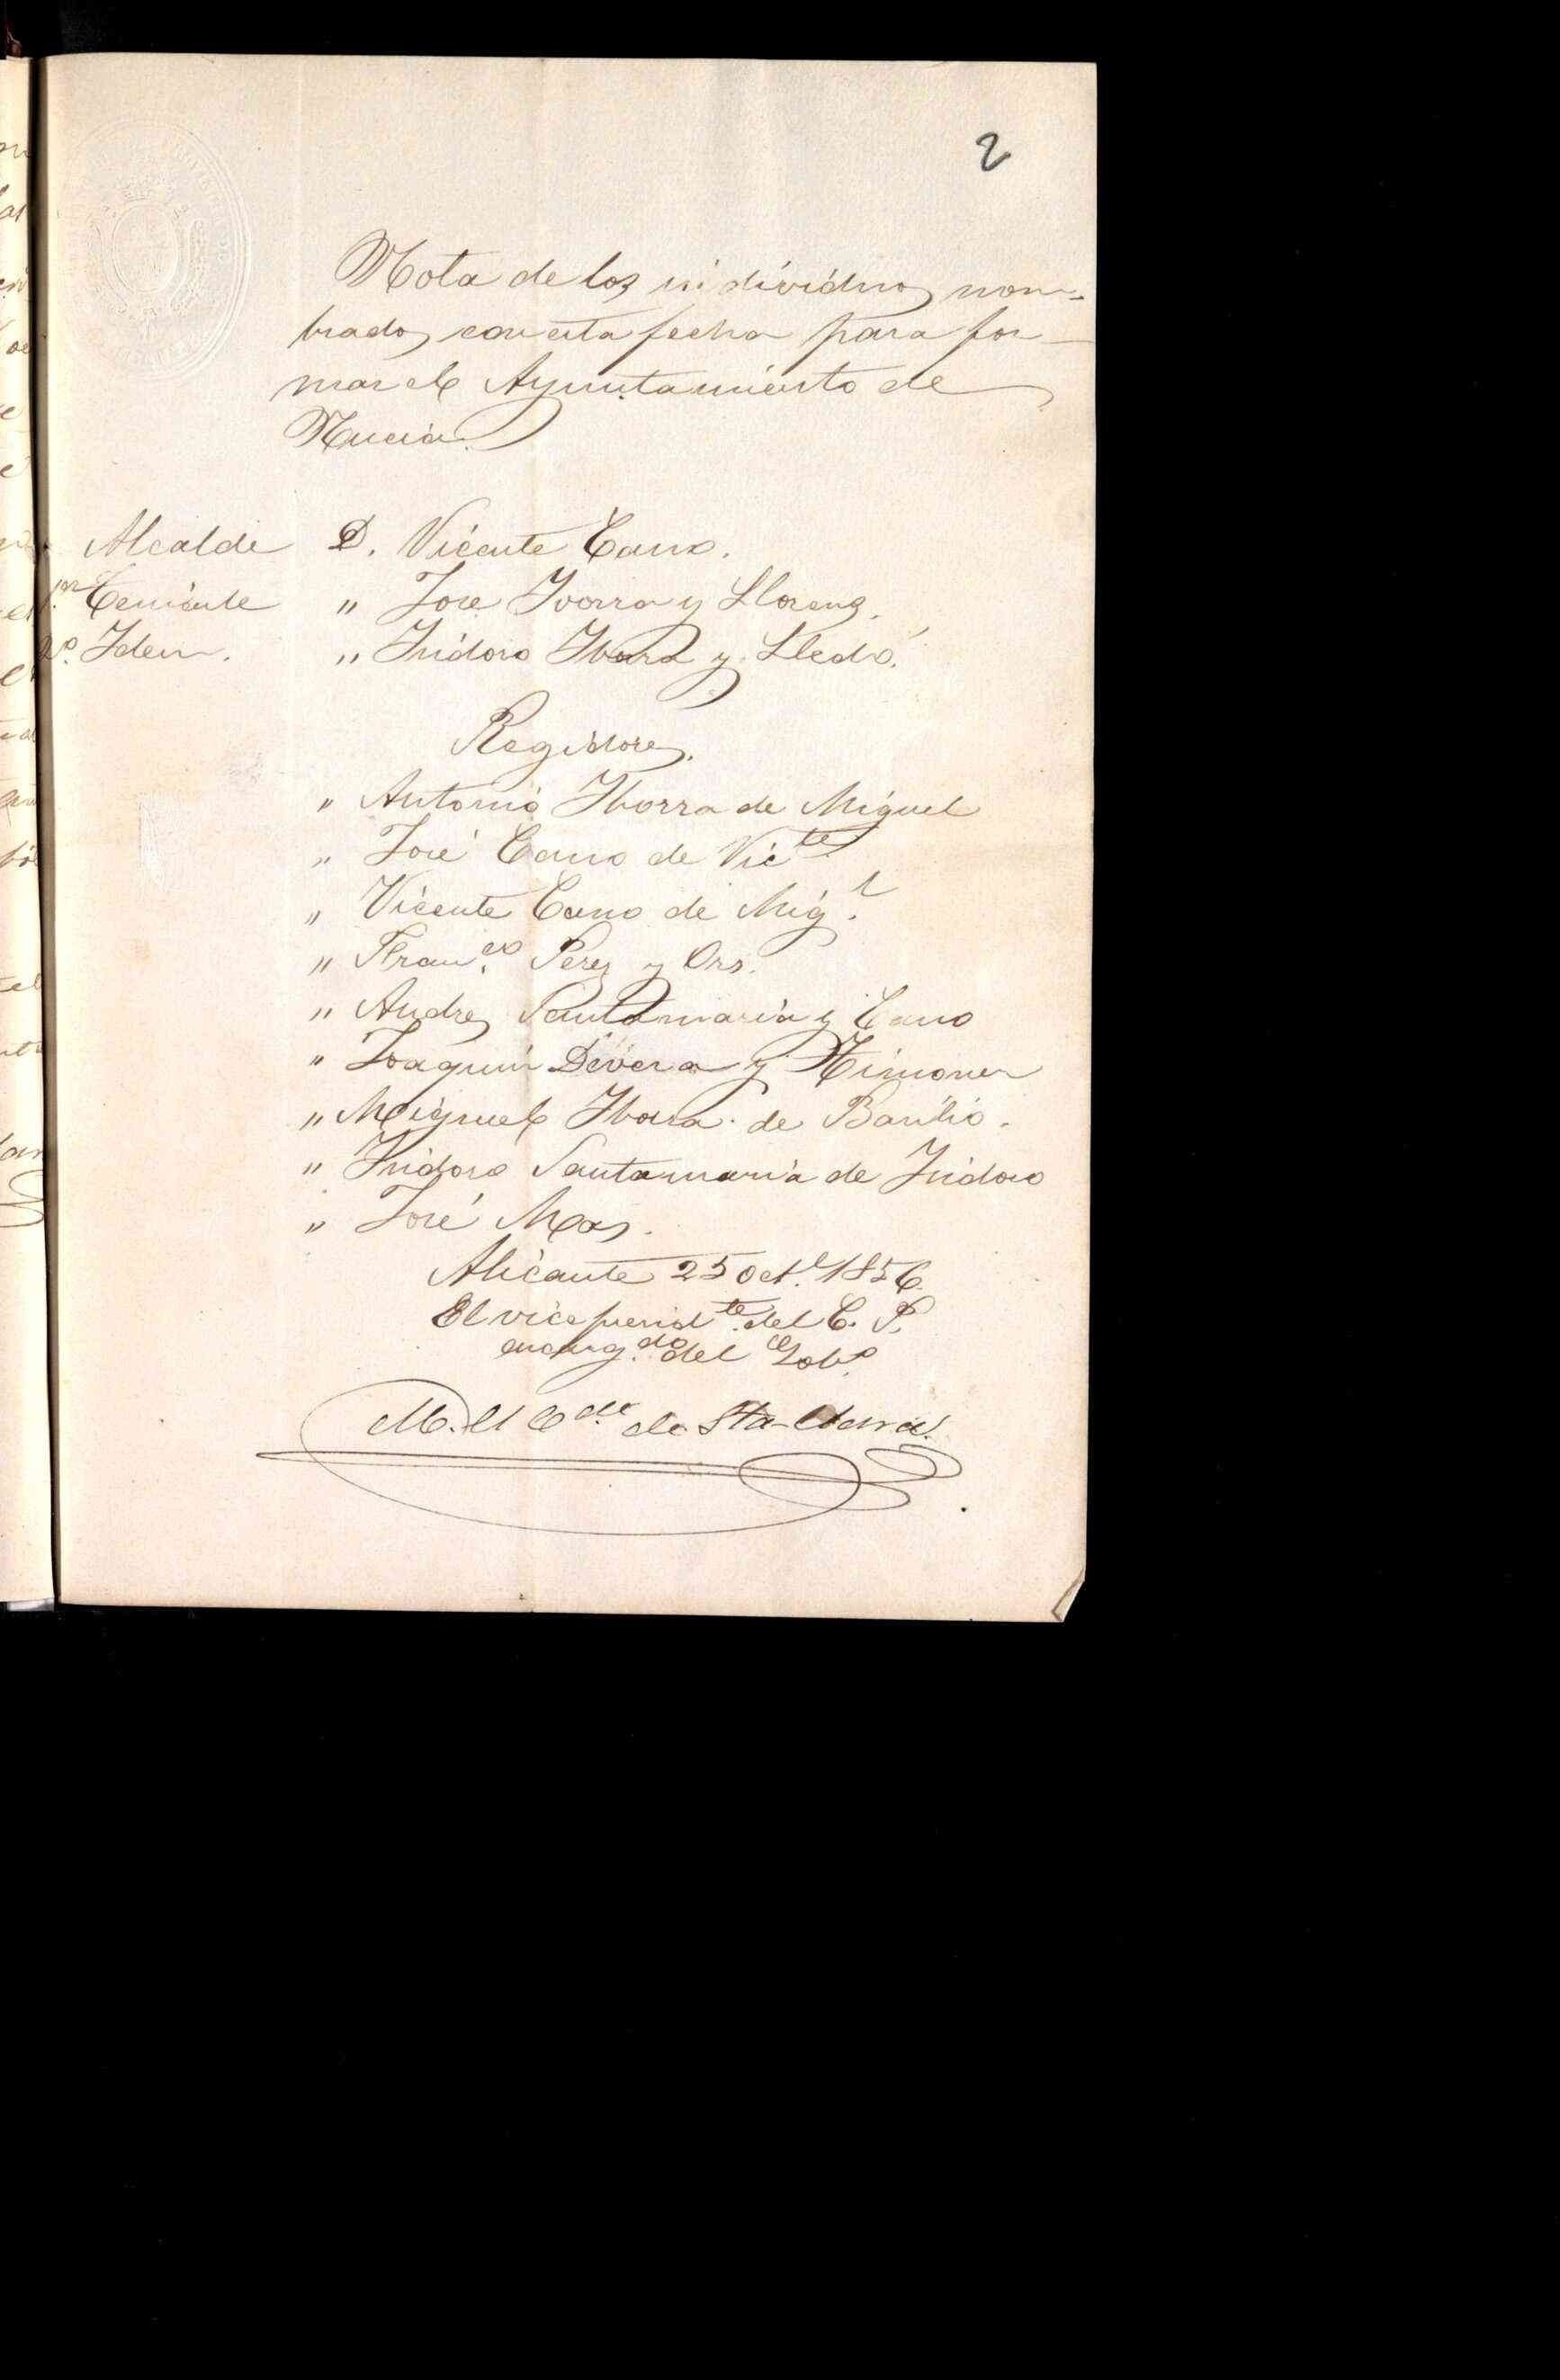 2
Nota de los individuos nom-
brados con esta fecha para for-
mar el Ayuntamiento de
Nucia.
Alcalde D. Vicente Cano.
1.er Teniente " Jose Yvorra y Llorens.
2.o Idem. " Isidoro Yvorra y Lledó.
Regidores.
" Antonio Yborra de Miguel
" José Cano de Vic.te
" Vicente Cano de Mig.l
" Fran.co Perez y Ors.
" Andres Santamaria y Cano
" Joaquin Devesa y Ximener
" Miguel Yborra de Basilio.
" Isidoro Santamaria de Isidoro
" José Mas.
Alicante 25 oct.e 1856
El vicepresid.te del C. P.
encarg.do del Gob.o
M. El C.de de Sta. Clara.